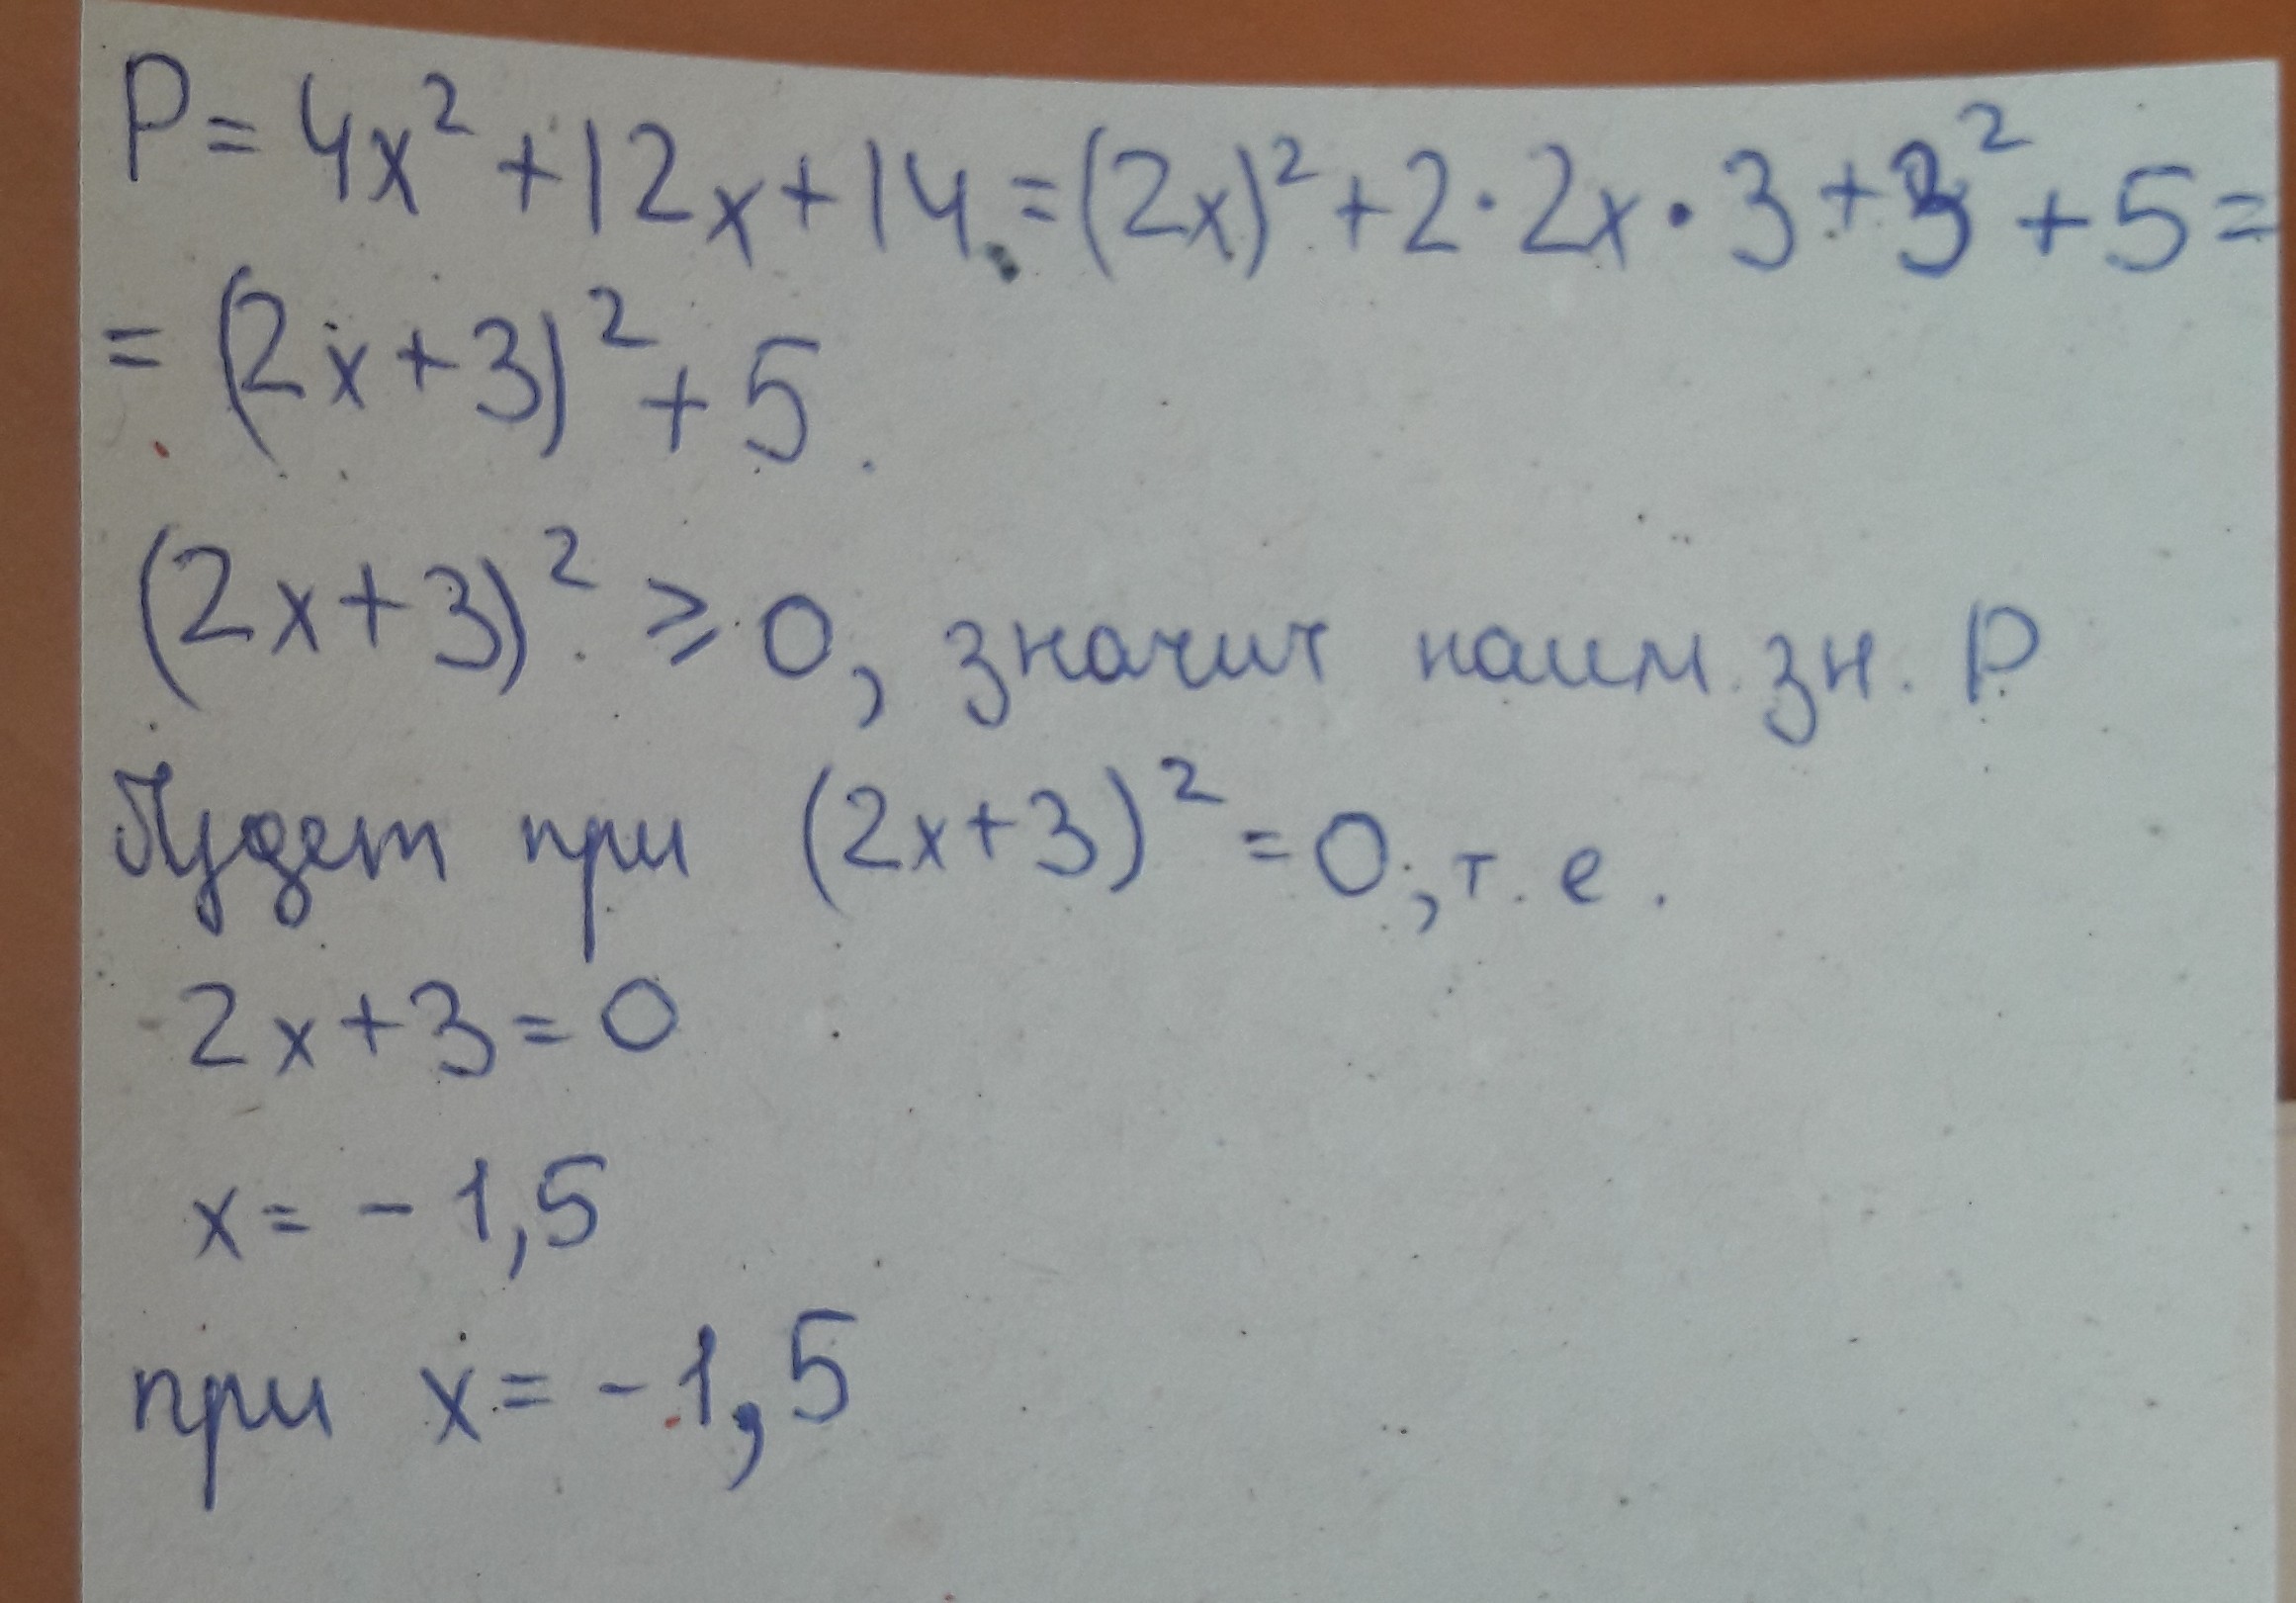 P = 4x² + 12x + 14 = (2x)² + 2 · 2x · 3 + 3² + 5 =
= (2x + 3)² + 5
(2x + 3)² ≥ 0, значит наим. зн. P
будет при (2x + 3)² = 0, т. е.
2x + 3 = 0
x = - 1,5
при x = - 1,5